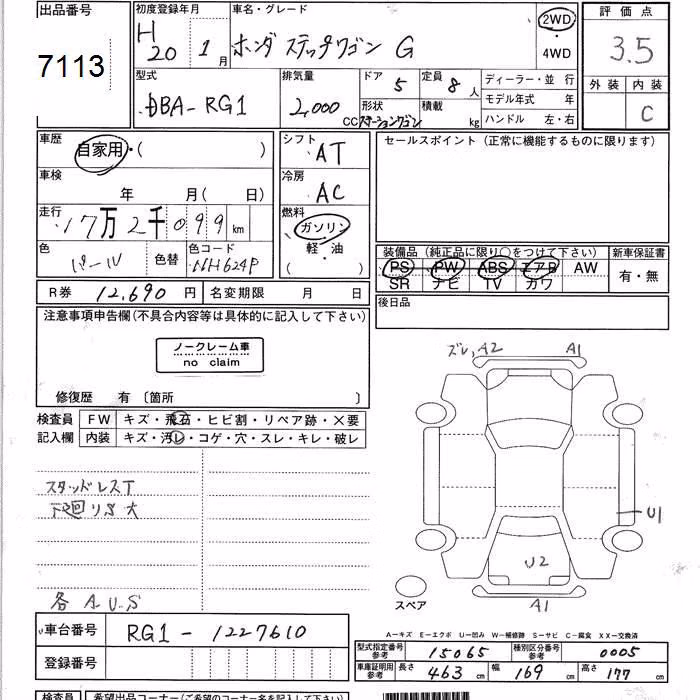 出品番号 初度登録年月 車名・グレード 評価点
7113 H 20 1月 ホンダ ステップワゴン G 2WD ・ 4WD 3.5
型式 排気量 ドア 5 定員 8人 ディーラー・並 行 外装 内装
DBA-RG1 2,000 CC 形状 ステーションワゴン 積載 kg モデル年式 年 C
ハンドル 左・右
車歴 自家用・( ) シフト AT セールスポイント (正常に機能するものに限ります)
車検 年 月( 日) 冷房 AC
走行 17万2千099km 燃料 ガソリン 軽・油 ( )
色 パール 色替 色コード NH624P 装備品 (純正品に限り○をつけて下さい) 新車保証書
PS PW ABS エアB AW 有・無
SR ナビ TV カワ
R券 12,690 円 名変期限 月 日 後日品
注意事項申告欄(不具合内容等は具体的に記入して下さい)
ノークレーム車
no claim
修復歴 有 〔箇所 〕
ズレ, A2 A1
検査員 FW キズ・飛石・ヒビ割・リペア跡・×要
記入欄 内装 キズ・汚レ・コゲ・穴・スレ・キレ・破レ
スタッドレスT
下廻りS大
U1
U2
各 A.U.S
スペア A1
A-キズ E-エクボ U-凹み W-補修跡 S-サビ C-腐食 XX-交換済
車台番号 RG1-1227610
型式指定番号 参考 15065 種別区分番号 参考 0005
登録番号
車庫証明用 参考 長さ 463 cm 幅 169 cm 高さ 177 cm
検査員 希望出品コーナー(ご希望のコーナー名を記入して下さい)